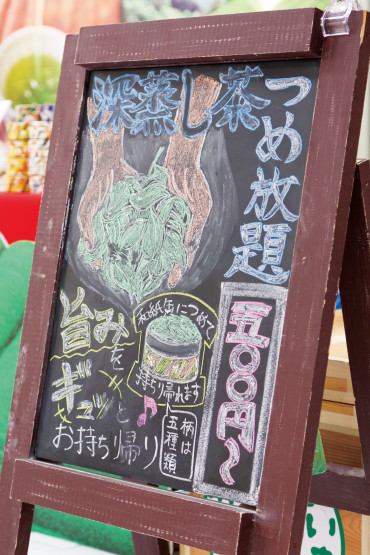 深蒸し茶
つめ放題
五〇〇円〜
旨みを
ギュッと
お持ち帰り♪
和紙缶につめて
持ち帰れます
柄は
五種類